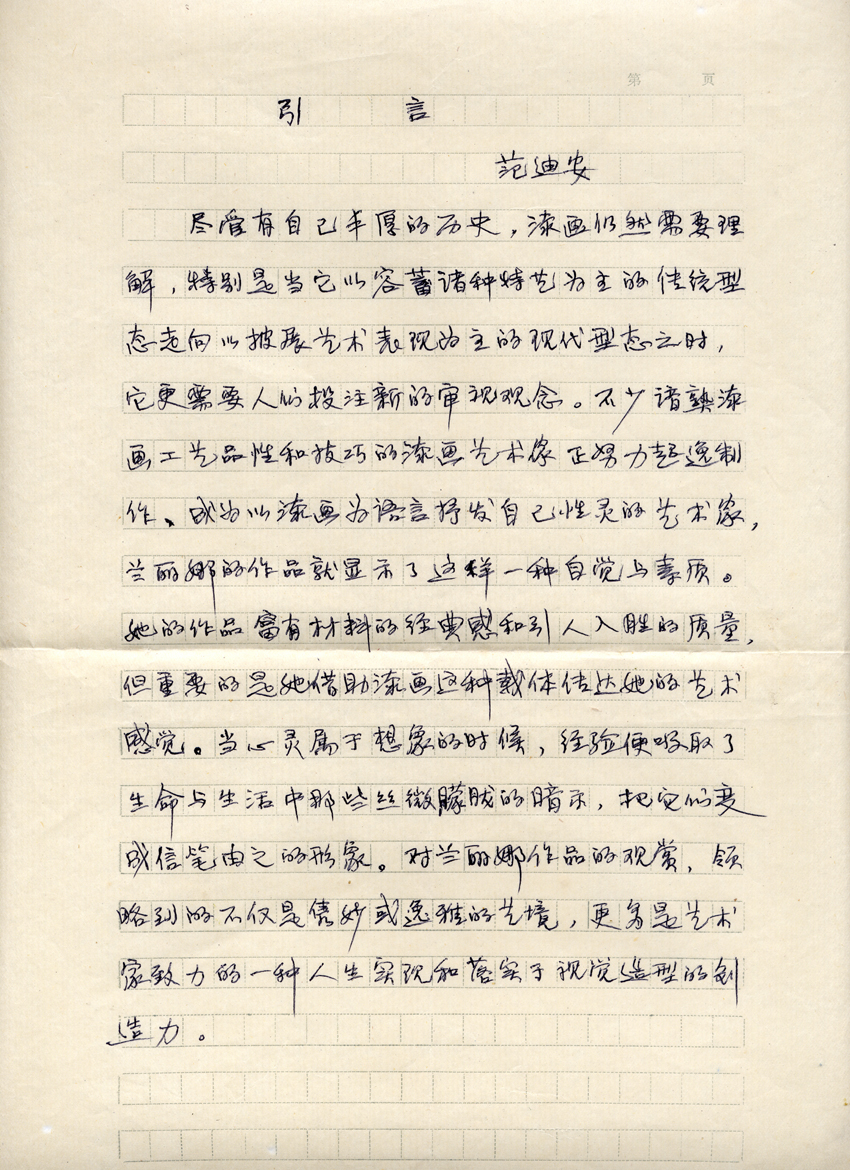 第 页
引 言
范迪安
尽管有自己丰厚的历史，漆画仍然需要理
解，特别是当它以容蓄诸种特艺为主的传统型
态走向以披展艺术表现为主的现代型态之时，
它更需要人们投注新的审视观念。不少谙熟漆
画工艺品性和技巧的漆画艺术家正努力超逸制
作、成为以漆画为语言抒发自己性灵的艺术家，
兰丽娜的作品就显示了这样一种自觉与素质。
她的作品富有材料的经典感和引人入胜的质量，
但重要的是她借助漆画这种载体传达她的艺术
感觉。当心灵属于想象的时候，经验便吸取了
生命与生活中那些丝微朦胧的暗示，把它们变
成信笔由之的形象。对兰丽娜作品的观赏，领
略到的不仅是隽妙或逸雅的艺境，更多是艺术
家致力的一种人生实现和落实于视觉造型的创
造力。